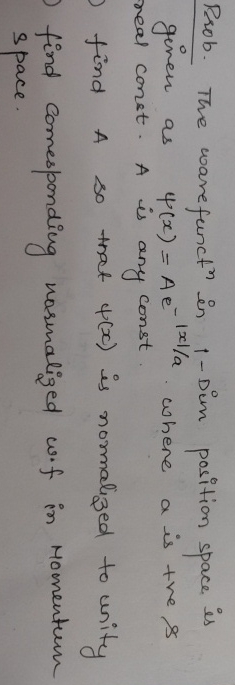 Prob. The wavefunctⁿ in 1-Dim position space is
given as ψ(x) = A e^{-|x|/a}. where a is +ve &
real const. A is any const.
) find A so that ψ(x) is normalized to unity
) find corresponding normalized w.f in Momentum
space.